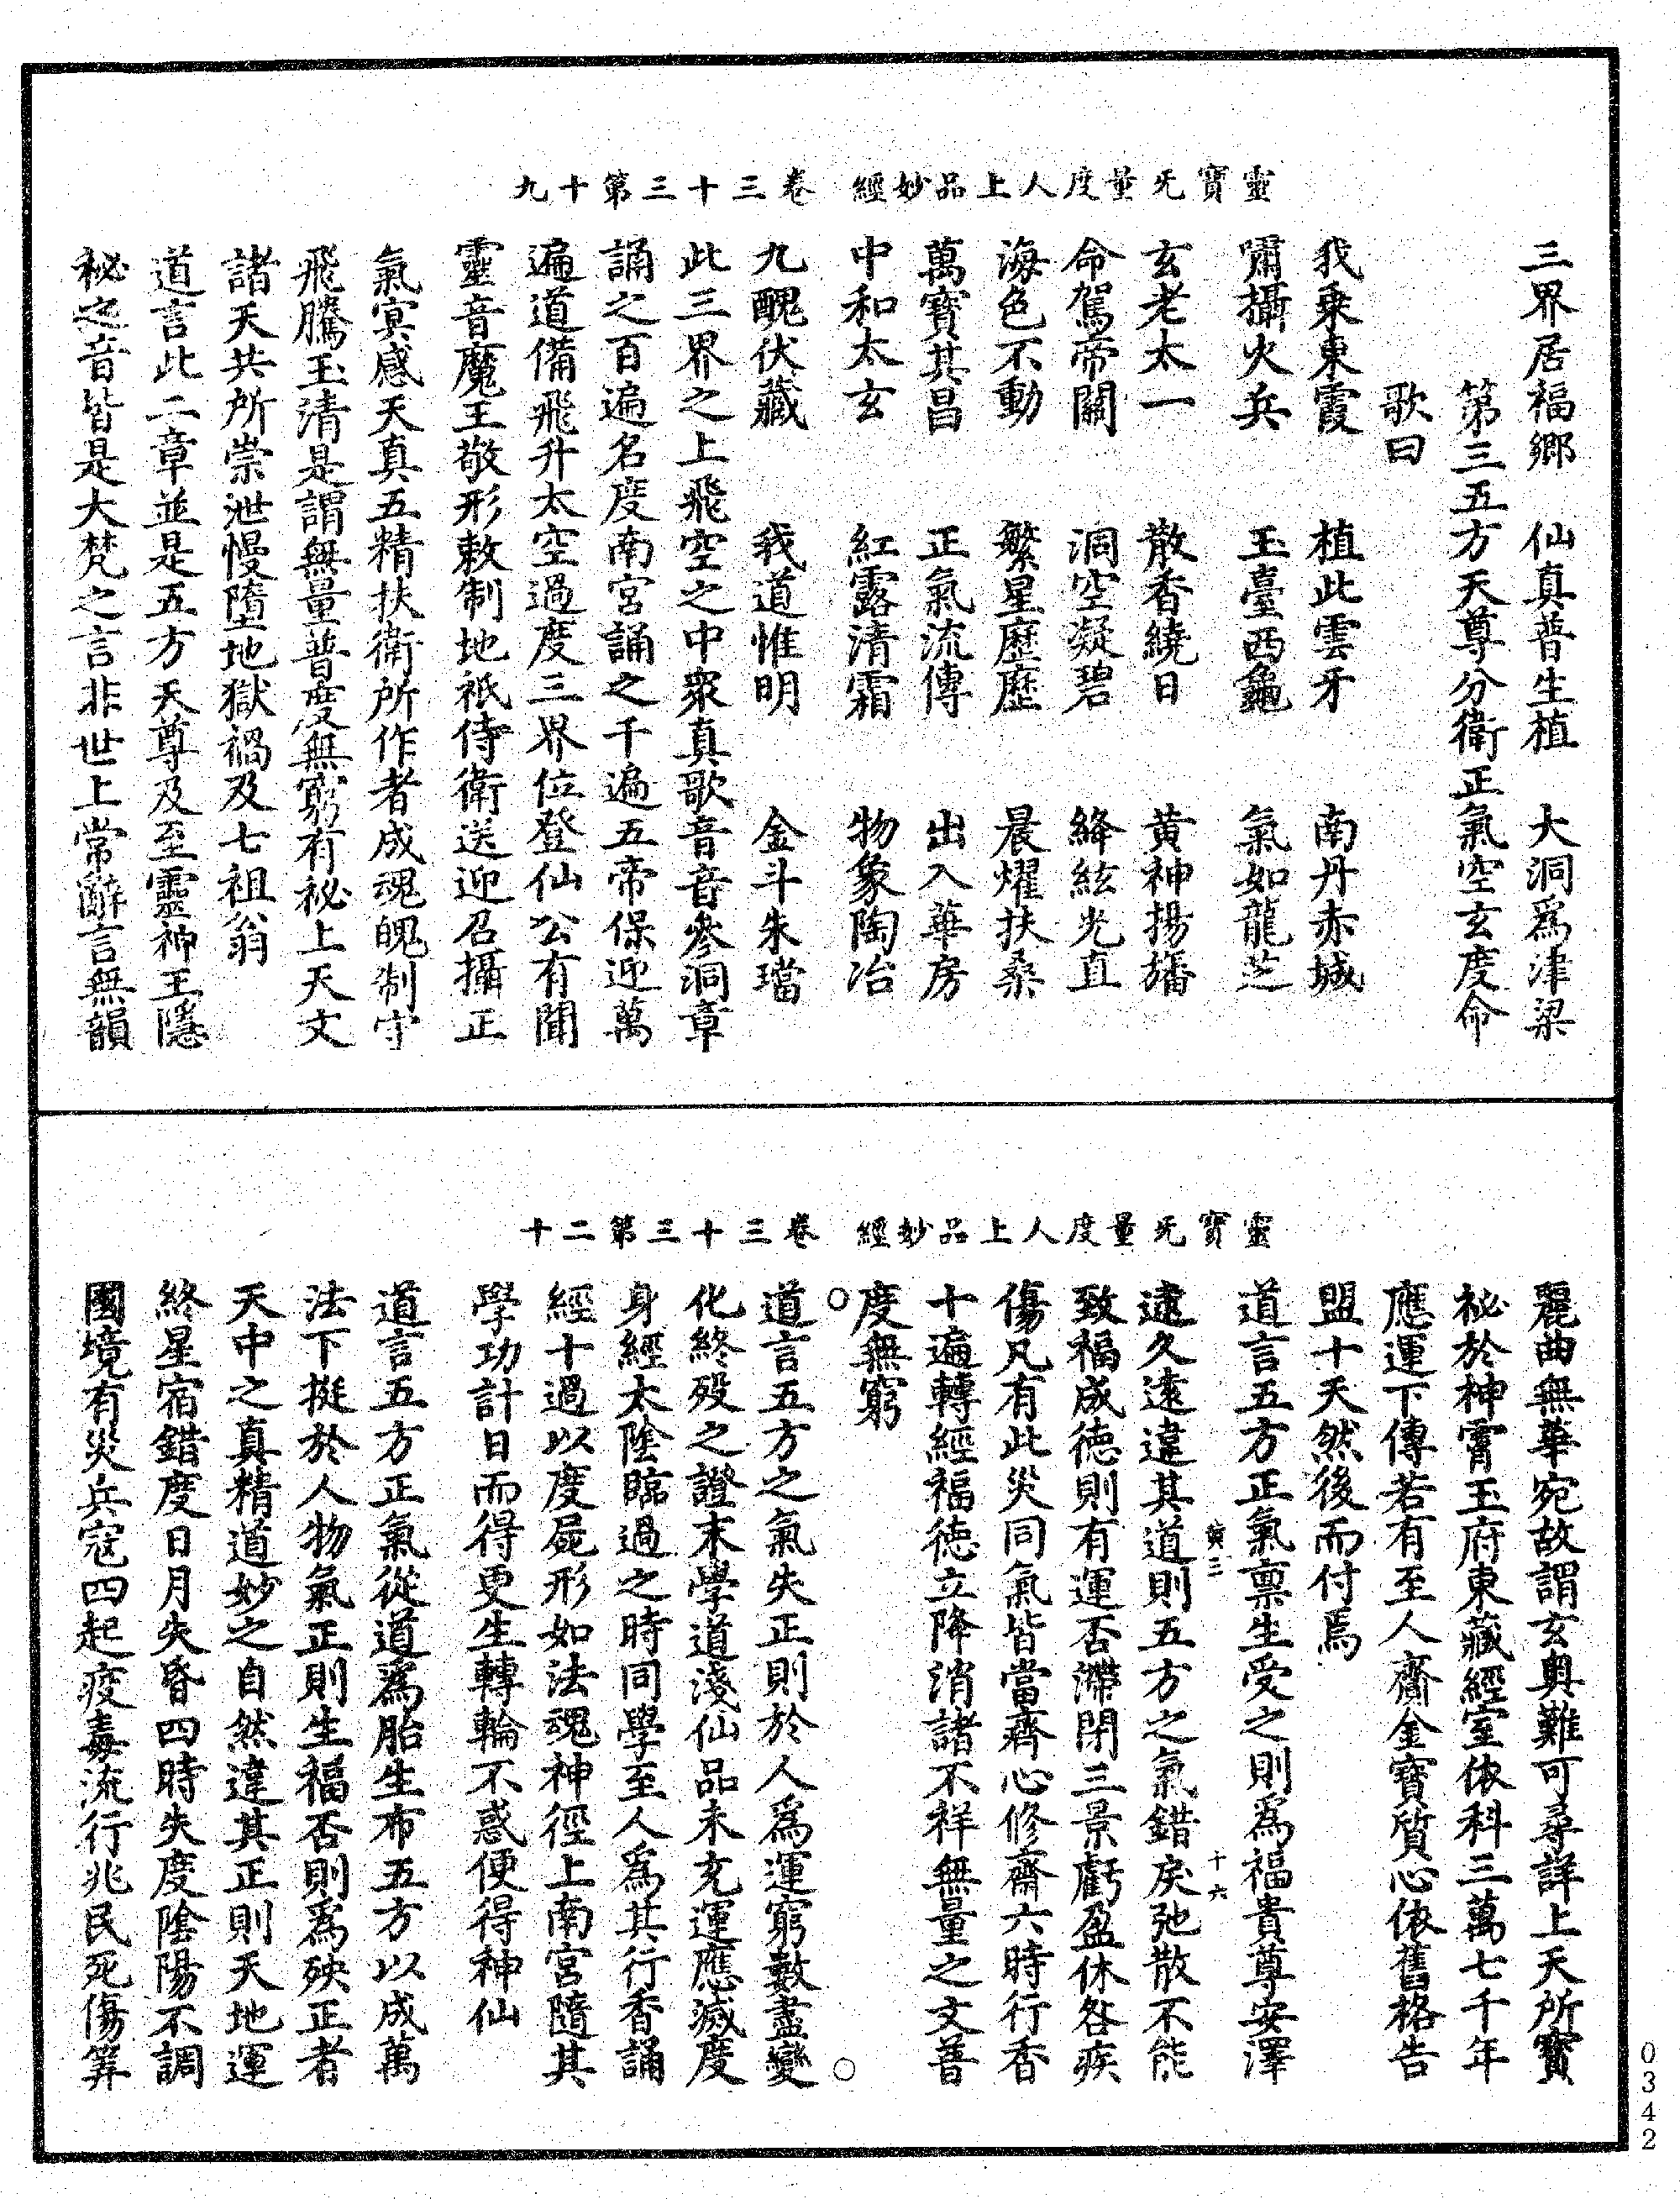 靈寶无量度人上品妙經　卷三十三第十九
三界居福鄉　仙真普生植　大洞爲津梁
第三五方天尊分衛正氣空玄度命
歌曰
我乘東霞　植此雲牙　南丹赤城
嘯攝火兵　玉臺西龜　氣如龍芝
玄老太一　散香繞日　黃神揚旛
命駕帝關　洞空凝碧　絳紘光直
海色不動　繁星歷歷　晨燿扶桑
萬寶其昌　正氣流傳　出入華房
中和太玄　紅露清霜　物象陶冶
九醜伏藏　我道惟明　金斗朱璫
此三界之上飛空之中衆真歌音音參洞章
誦之百遍名度南宮誦之千遍五帝保迎萬
遍道備飛升太空過度三界位登仙公有聞
靈音魔王敬形敕制地祇侍衛送迎召攝正
氣冥感天真五精扶衛所作者成魂魄制守
飛騰玉清是謂無量普度無窮有祕上天文
諸天共所崇泄慢墮地獄禍及七祖翁
道言此二章並是五方天尊及至靈神王隱
祕之音皆是大梵之言非世上常辭言無韻
靈寶无量度人上品妙經　卷三十三第二十
麗曲無華宛故謂玄奧難可尋詳上天所寶
祕於神霄玉府東藏經室依科三萬七千年
應運下傳若有至人齎金寶質心依舊格告
盟十天然後而付焉
道言五方正氣禀生受之則爲福貴尊安澤
黃三　十六
逮久遠違其道則五方之氣錯戾弛散不能
致福成德則有運否滯閉三景虧盈休咎疾
傷凡有此災同氣皆當齊心修齋六時行香
十遍轉經福德立降消諸不祥無量之文普
度無窮
道言五方之氣失正則於人爲運窮數盡變
化終殁之證末學道淺仙品未充運應滅度
身經太陰臨過之時同學至人爲其行香誦
經十過以度屍形如法魂神徑上南宮隨其
學功計日而得更生轉輪不惑便得神仙
道言五方正氣從道爲胎生布五方以成萬
法下挺於人物氣正則生福否則爲殃正者
天中之真精道妙之自然違其正則天地運
終星宿錯度日月失昏四時失度陰陽不調
國境有災兵寇四起疫毒流行兆民死傷筭
0342